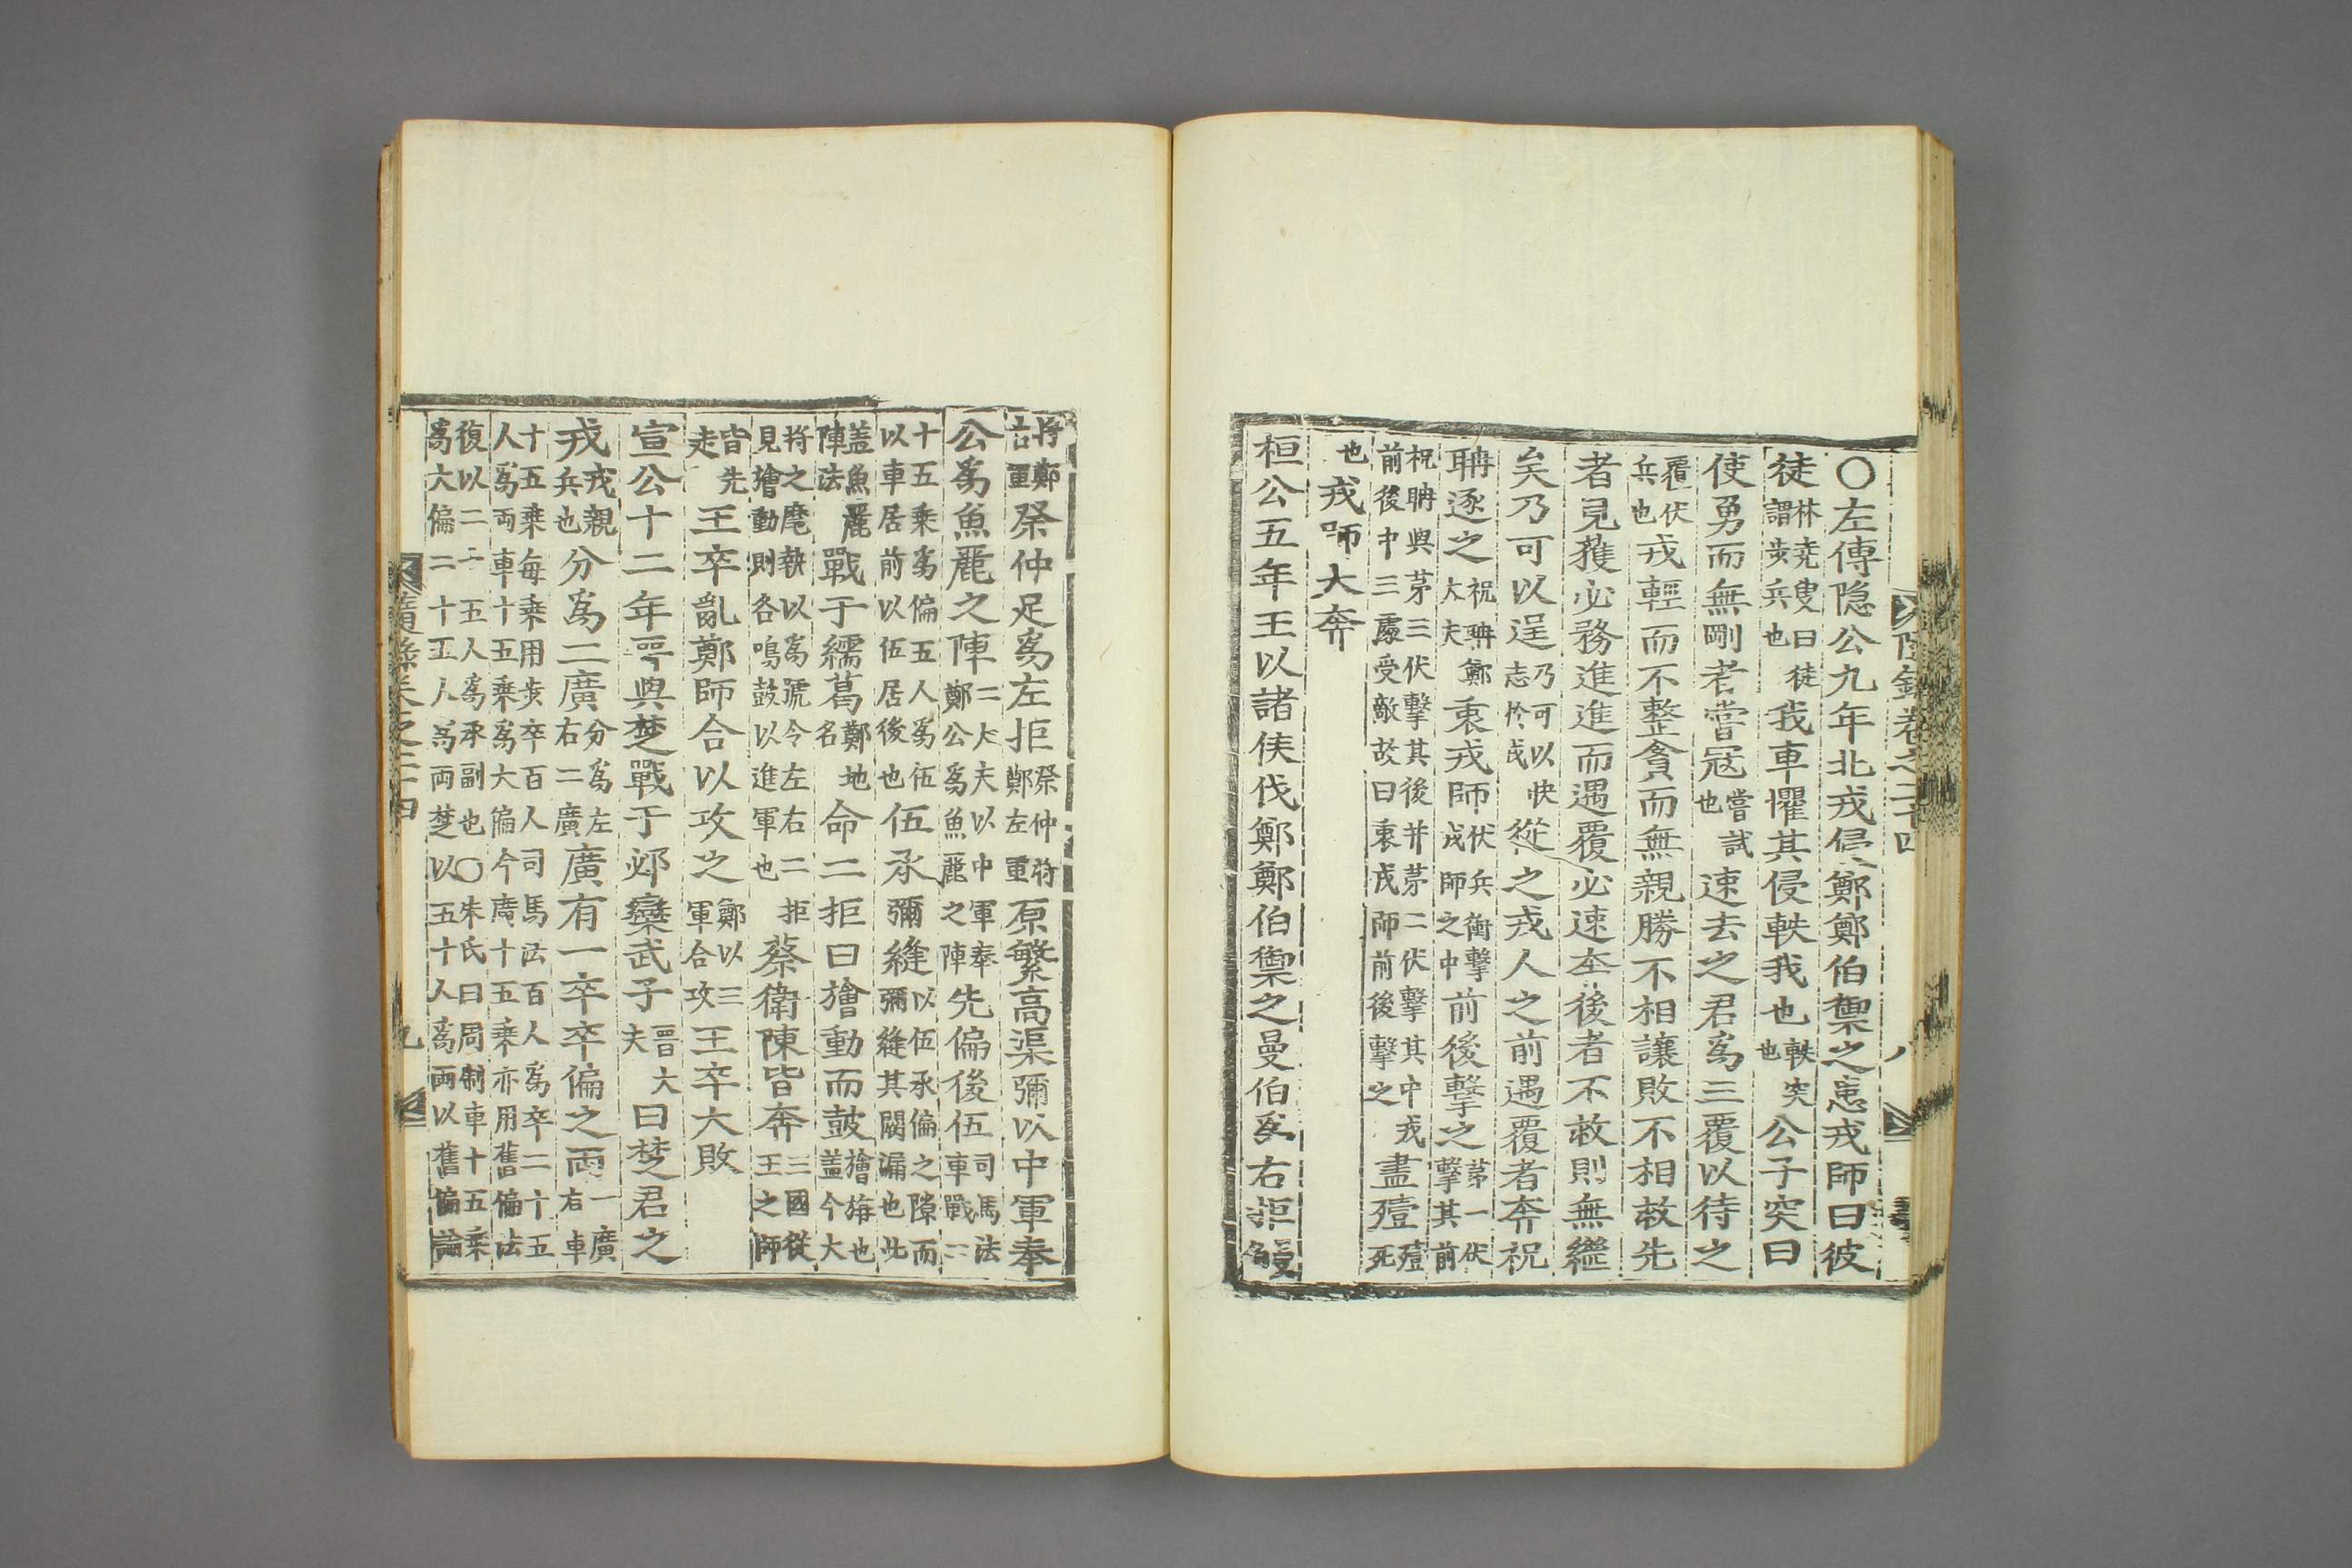 隨錄卷之二十四 八
○左傳隱公九年北戎侵鄭鄭伯禦之患戎師曰彼
徒林堯叟曰徒謂步兵也我車懼其侵軼我也軼突也公子突曰
使勇而無剛者嘗寇嘗試也速去之君爲三覆以待之
覆伏兵也戎輕而不整貪而無親勝不相讓敗不相救先
者見獲必務進進而遇覆必速奔後者不救則無繼
矣乃可以逞乃可以快志於戎從之戎人之前遇覆者奔祝
聃逐之祝聃鄭大夫衷戎師伏兵衝擊戎師之中前後擊之第一伏擊其前
祝聃與茅三伏擊其後并茅二伏擊其中戎前後中三處受敵故曰衷戎師前後擊之盡殪殪死
也戎師大奔
桓公五年王以諸侯伐鄭鄭伯禦之曼伯爲右拒
将鄭右重祭仲足爲左拒祭仲将鄭左重原繁高渠彌以中軍奉
公爲魚麗之陣二大夫以中軍奉鄭公爲魚麗之陣先偏後伍司馬法車戰二
十五乘爲偏五人爲伍以車居前以伍居後也伍承彌縫以伍承偏之隙而彌縫其闕漏也此
盖魚麗陣法戰于繻葛鄭地名命二拒曰旝動而鼓旝旃也盖今大
将之麾執以爲號令左右二拒見旝動則各鳴鼓以進軍也蔡衛陳皆奔三國從王之師
皆先走王卒亂鄭師合以攻之鄭以三軍合攻王卒大敗
宣公十二年晉與楚戰于邲欒武子晉大夫曰楚君之
戎戎親兵也分爲二廣分爲左右二廣廣有一卒卒偏之兩一廣右車
十五乘每乘用步卒百人司馬法百人爲卒二十五人爲兩車十五乘爲大偏今廣十五乘亦用舊偏法
復以二十五人爲承副也○朱氏曰周制車十五乘爲大偏二十五人爲兩楚以五十人爲兩以舊偏論
隨錄卷之二十四 九